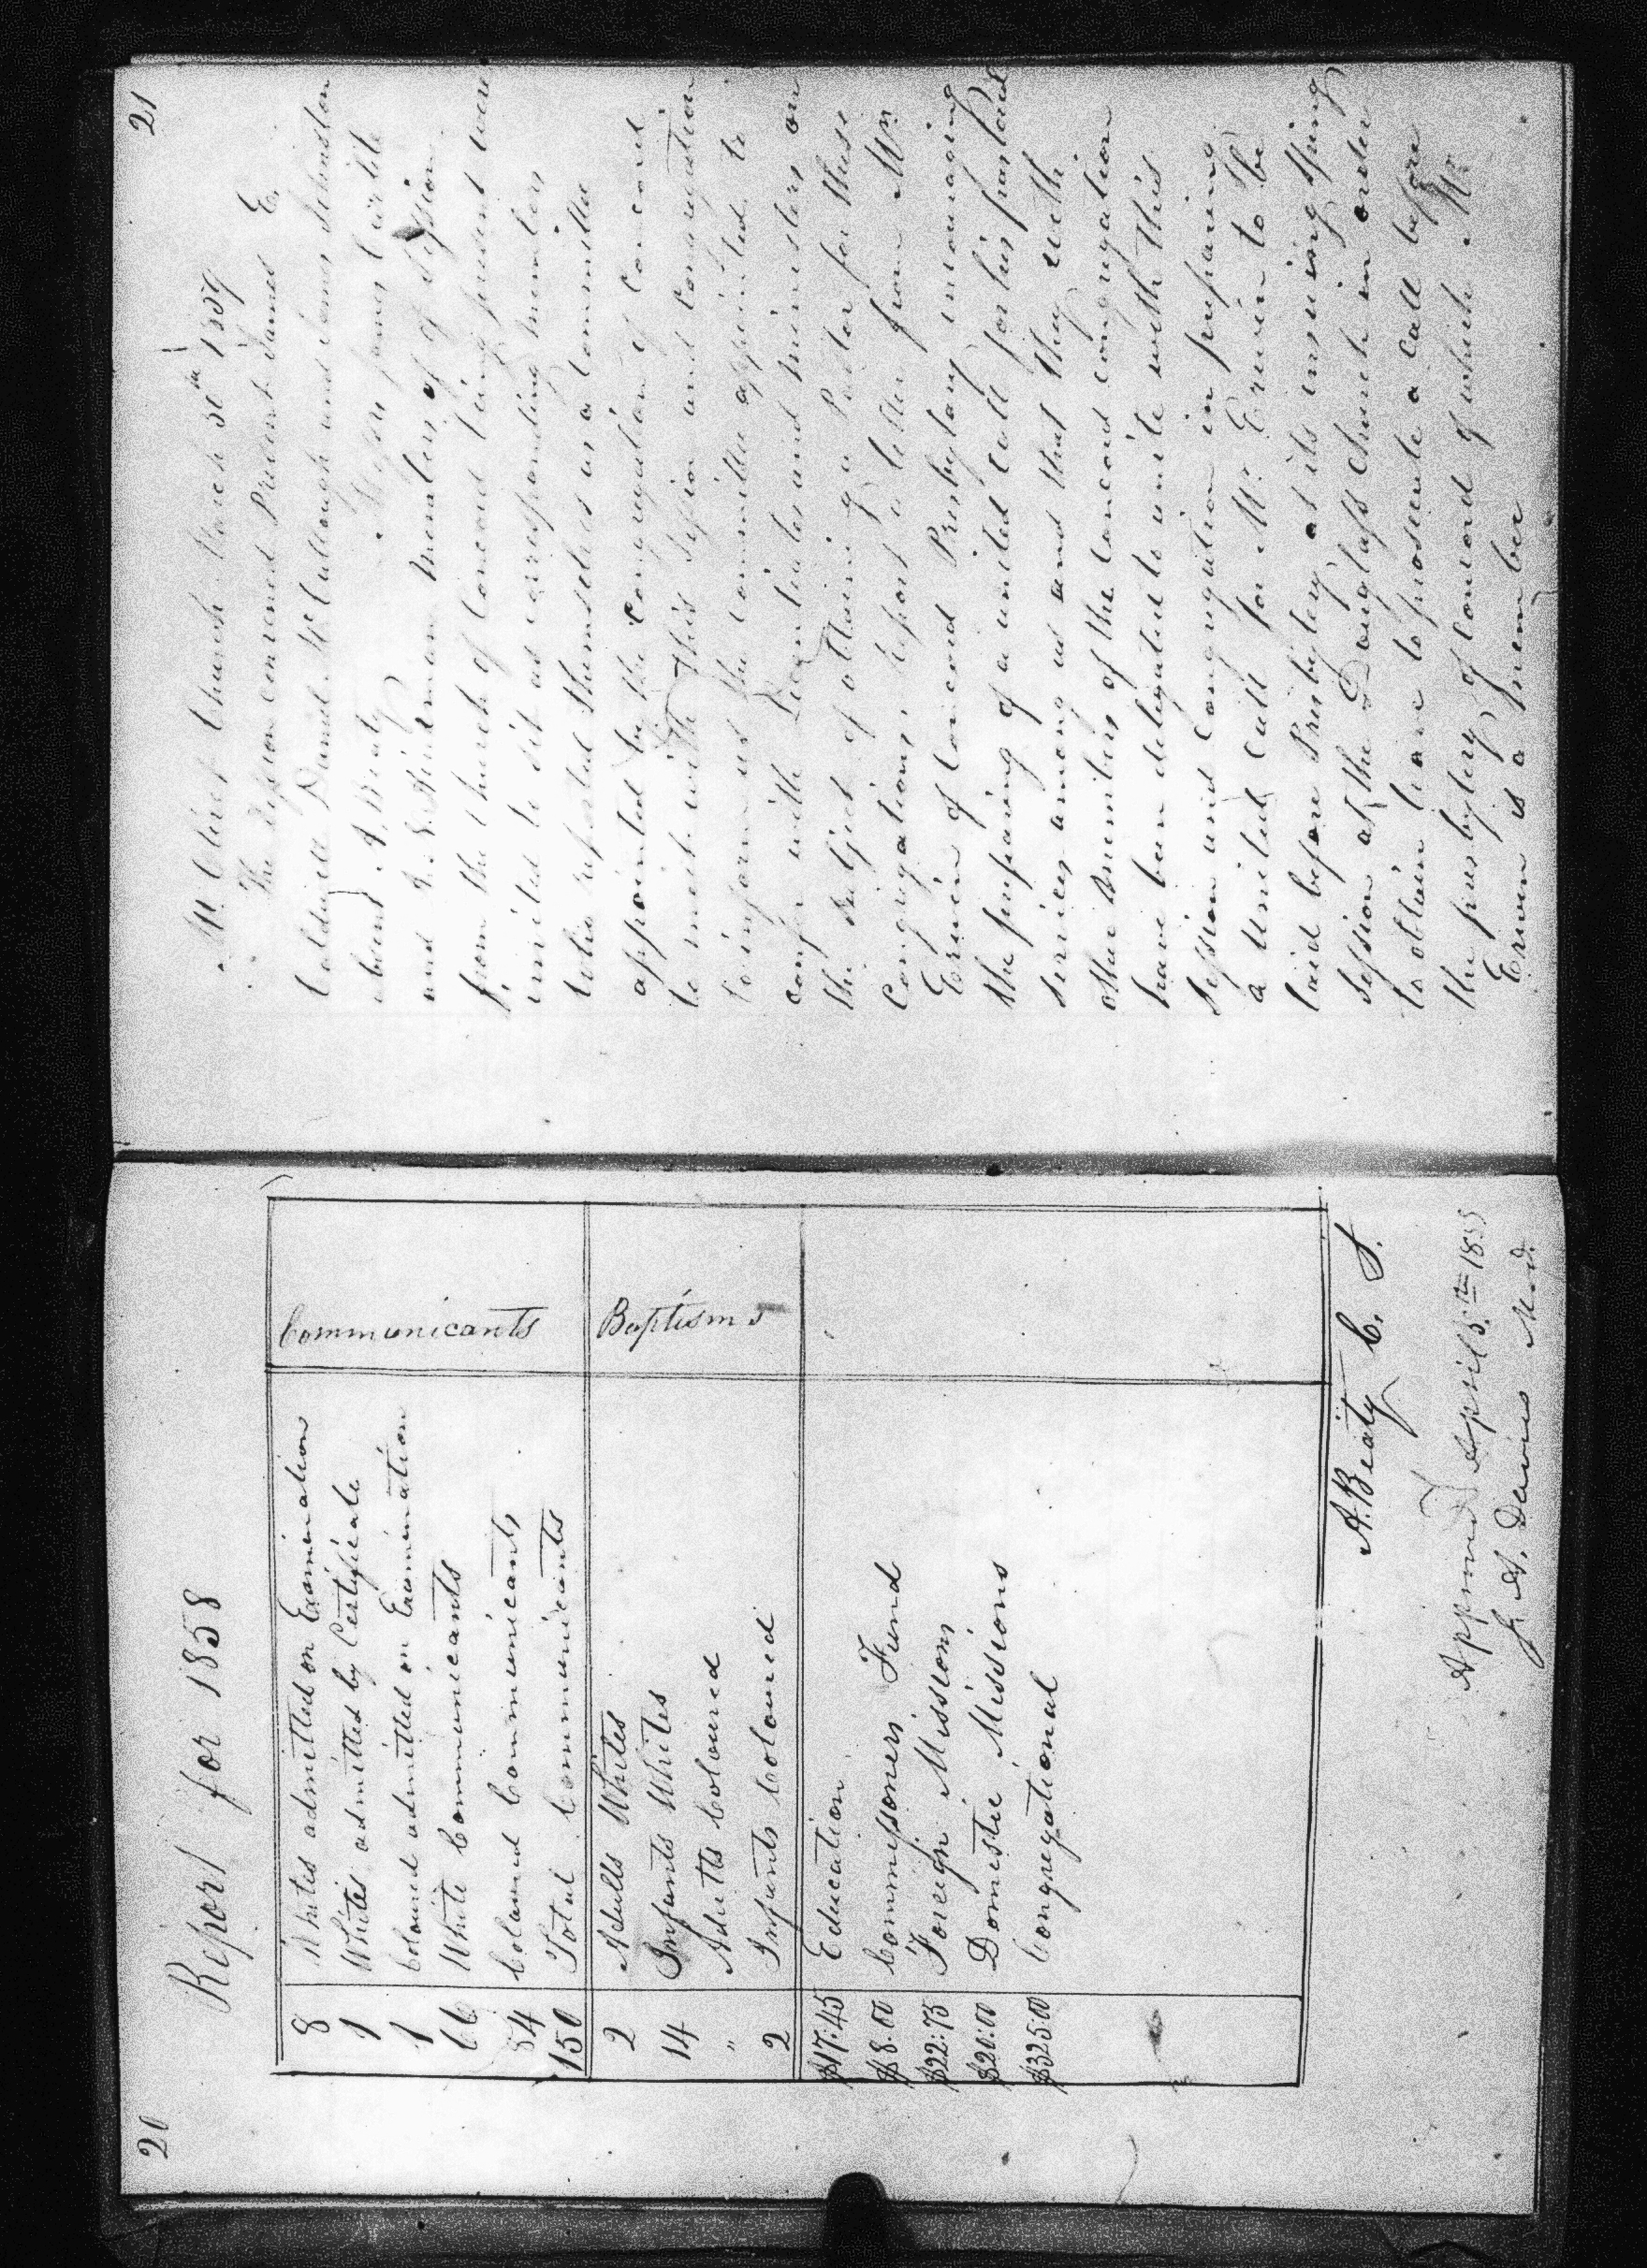 20
Report for 1858
8 Whites admitted on Examination Communicants
1 Whites admitted by Certificate
1 Coloured admitted on Examination
66 White Communicants
84 Coloured Communicants
150 Total Communicants
2 Adults Whites Baptisms
14 Infants Whites
" Adults Coloured
2 Infants Coloured
$17:45 Education
$8.00 Commissoners Fund
$22:75 Foreign Missions
$20:00 Domestic Missions
$325 00 Congregational
A. Beaty C. S.
Approved April 5th
Davies Mod.
21
Mt Olivet Church March 30th 1859
The Session convened Present Samuel E.
Coldwell Daniel McCullough and James Johnston
absent A. Beaty. James Cirtile
and Members of Session
from the church of Concord being present were
invited to sit as corresponding members
who reported themselves as a committee
appointed by the Congregation of Concord
to meet with this Session and Congregation
to inform us the committee appointed to
confer with Licentiates and Ministers on
the subject of obtaining a Pastor for these
Congregations, report a letter from Mr
Erwin of Concord Presbytery incouraging
the prepairing of a united call for his pastoral
services among us and that they with
other members of the Concord congregation
have been deligated to unite with this
session and congregation in prepairing
a united call for Mr Erwin to be
laid before Presbytery at its ensuing Spring
session at the Douglass Church in order
to obtain leave to prosecute a call before
the presbytery of Concord of which Mr
Erwin is a member